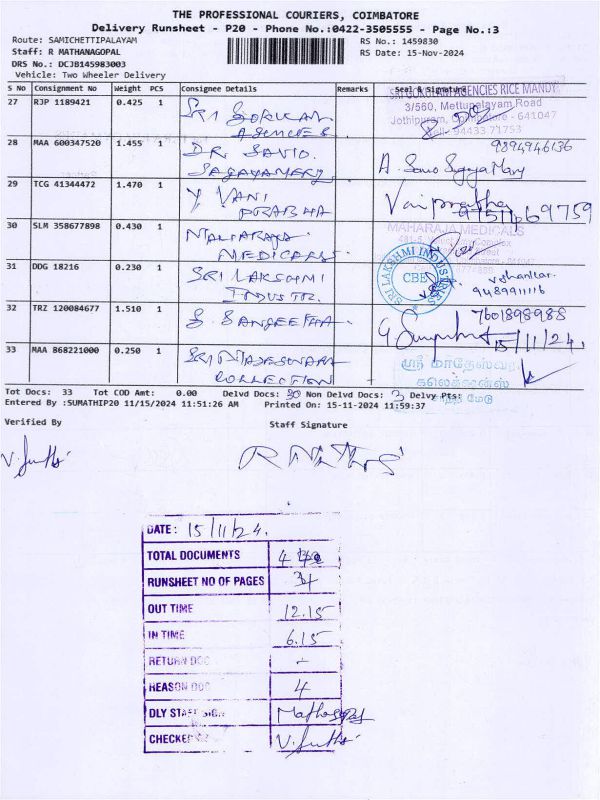 THE PROFESSIONAL COURIERS, COIMBATORE
Delivery Runsheet - P20 - Phone No.:0422-3505555 - Page No.:3
Route: SAMICHETTIPALAYAM
RS No.: 1459830
Staff: R MATHANAGOPAL
RS Date: 15-Nov-2024
DRS No.: DCJB145983003
Vehicle: Two Wheeler Delivery
S No Consignment No Weight PCS Consignee Details Remarks Seal & Signature
27 RJP 1189421 0.425 1 SRI GOKULAM
AGENCIES
SRI GOKULAM AGENCIES RICE MANDY
3/560, Mettupalayam Road
Jothipuram, Coimbatore - 641047
Cell: 94433 71753
28 MAA 600347520 1.455 1 DR SAVIO.
SAGAYAMERY
9894946136
29 TCG 41344472 1.470 1 Y VANI
PRABHA
Vaniprabha
9751669759
30 SLM 358677898 0.430 1 MAHARAJA
MEDICALS
MAHARAJA MEDICALS
31 DDG 18216 0.230 1 SRI LAKSHMI
INDUSTRI.
SRI LAKSHMI INDUSTRIES
CBE
9489911116
32 TRZ 120084677 1.510 1 S. SANGEETHA.
7601898988
15/11/24.
33 MAA 868221000 0.250 1 SRI MAJESWARA
COLLECTION
ஸ்ரீ மாதேஸ்வரா
கலெக்சன்ஸ்
மேடு
Tot Docs: 33 Tot COD Amt: 0.00 Delvd Docs: 30 Non Delvd Docs: 3 Delvy Pts:
Entered By :SUMATHIP20 11/15/2024 11:51:26 AM Printed On: 15-11-2024 11:59:37
Verified By Staff Signature
DATE: 15/11/24.
TOTAL DOCUMENTS 4
RUNSHEET NO OF PAGES
OUT TIME 12.15
IN TIME 6.15
RETURN DOC -
REASON DOC 4
DLY STAFF SIGN
CHECKED